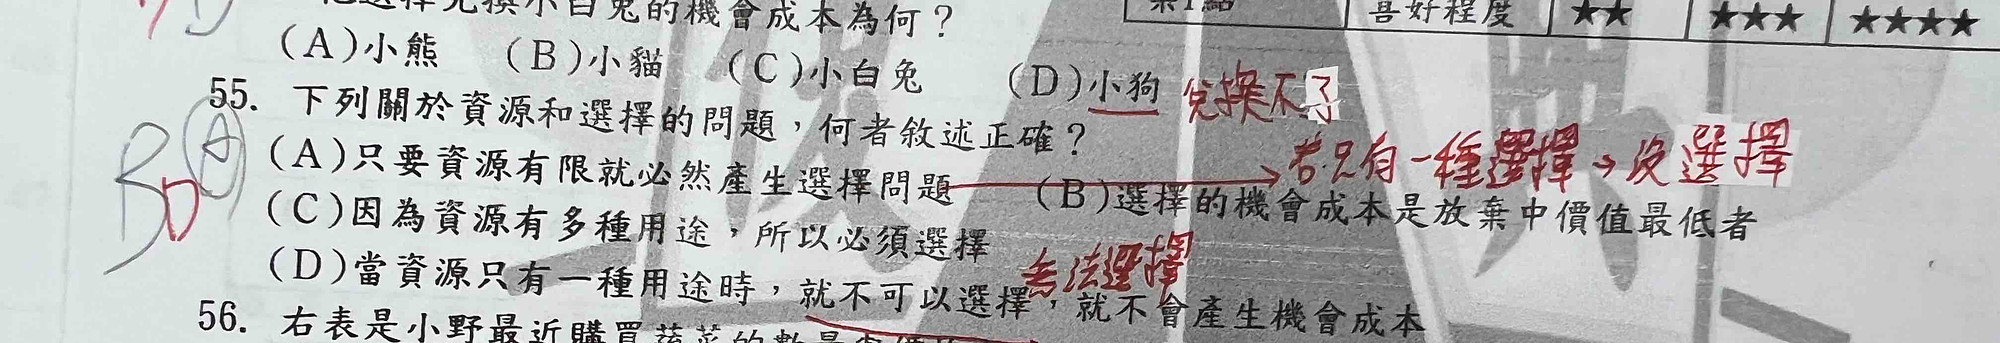 選擇兌換小白兔的機會成本為何？
(A)小熊　(B)小貓　(C)小白兔　(D)小狗 兌換不了
喜好程度 ★★ ★★★ ★★★★
55. 下列關於資源和選擇的問題，何者敘述正確？
B D A
(A)只要資源有限就必然產生選擇問題 → 若只有一種選擇→沒選擇
(B)選擇的機會成本是放棄中價值最低者
(C)因為資源有多種用途，所以必須選擇
無法選擇
(D)當資源只有一種用途時，就不可以選擇，就不會產生機會成本
56. 右表是小野最近購買蔬菜的數量